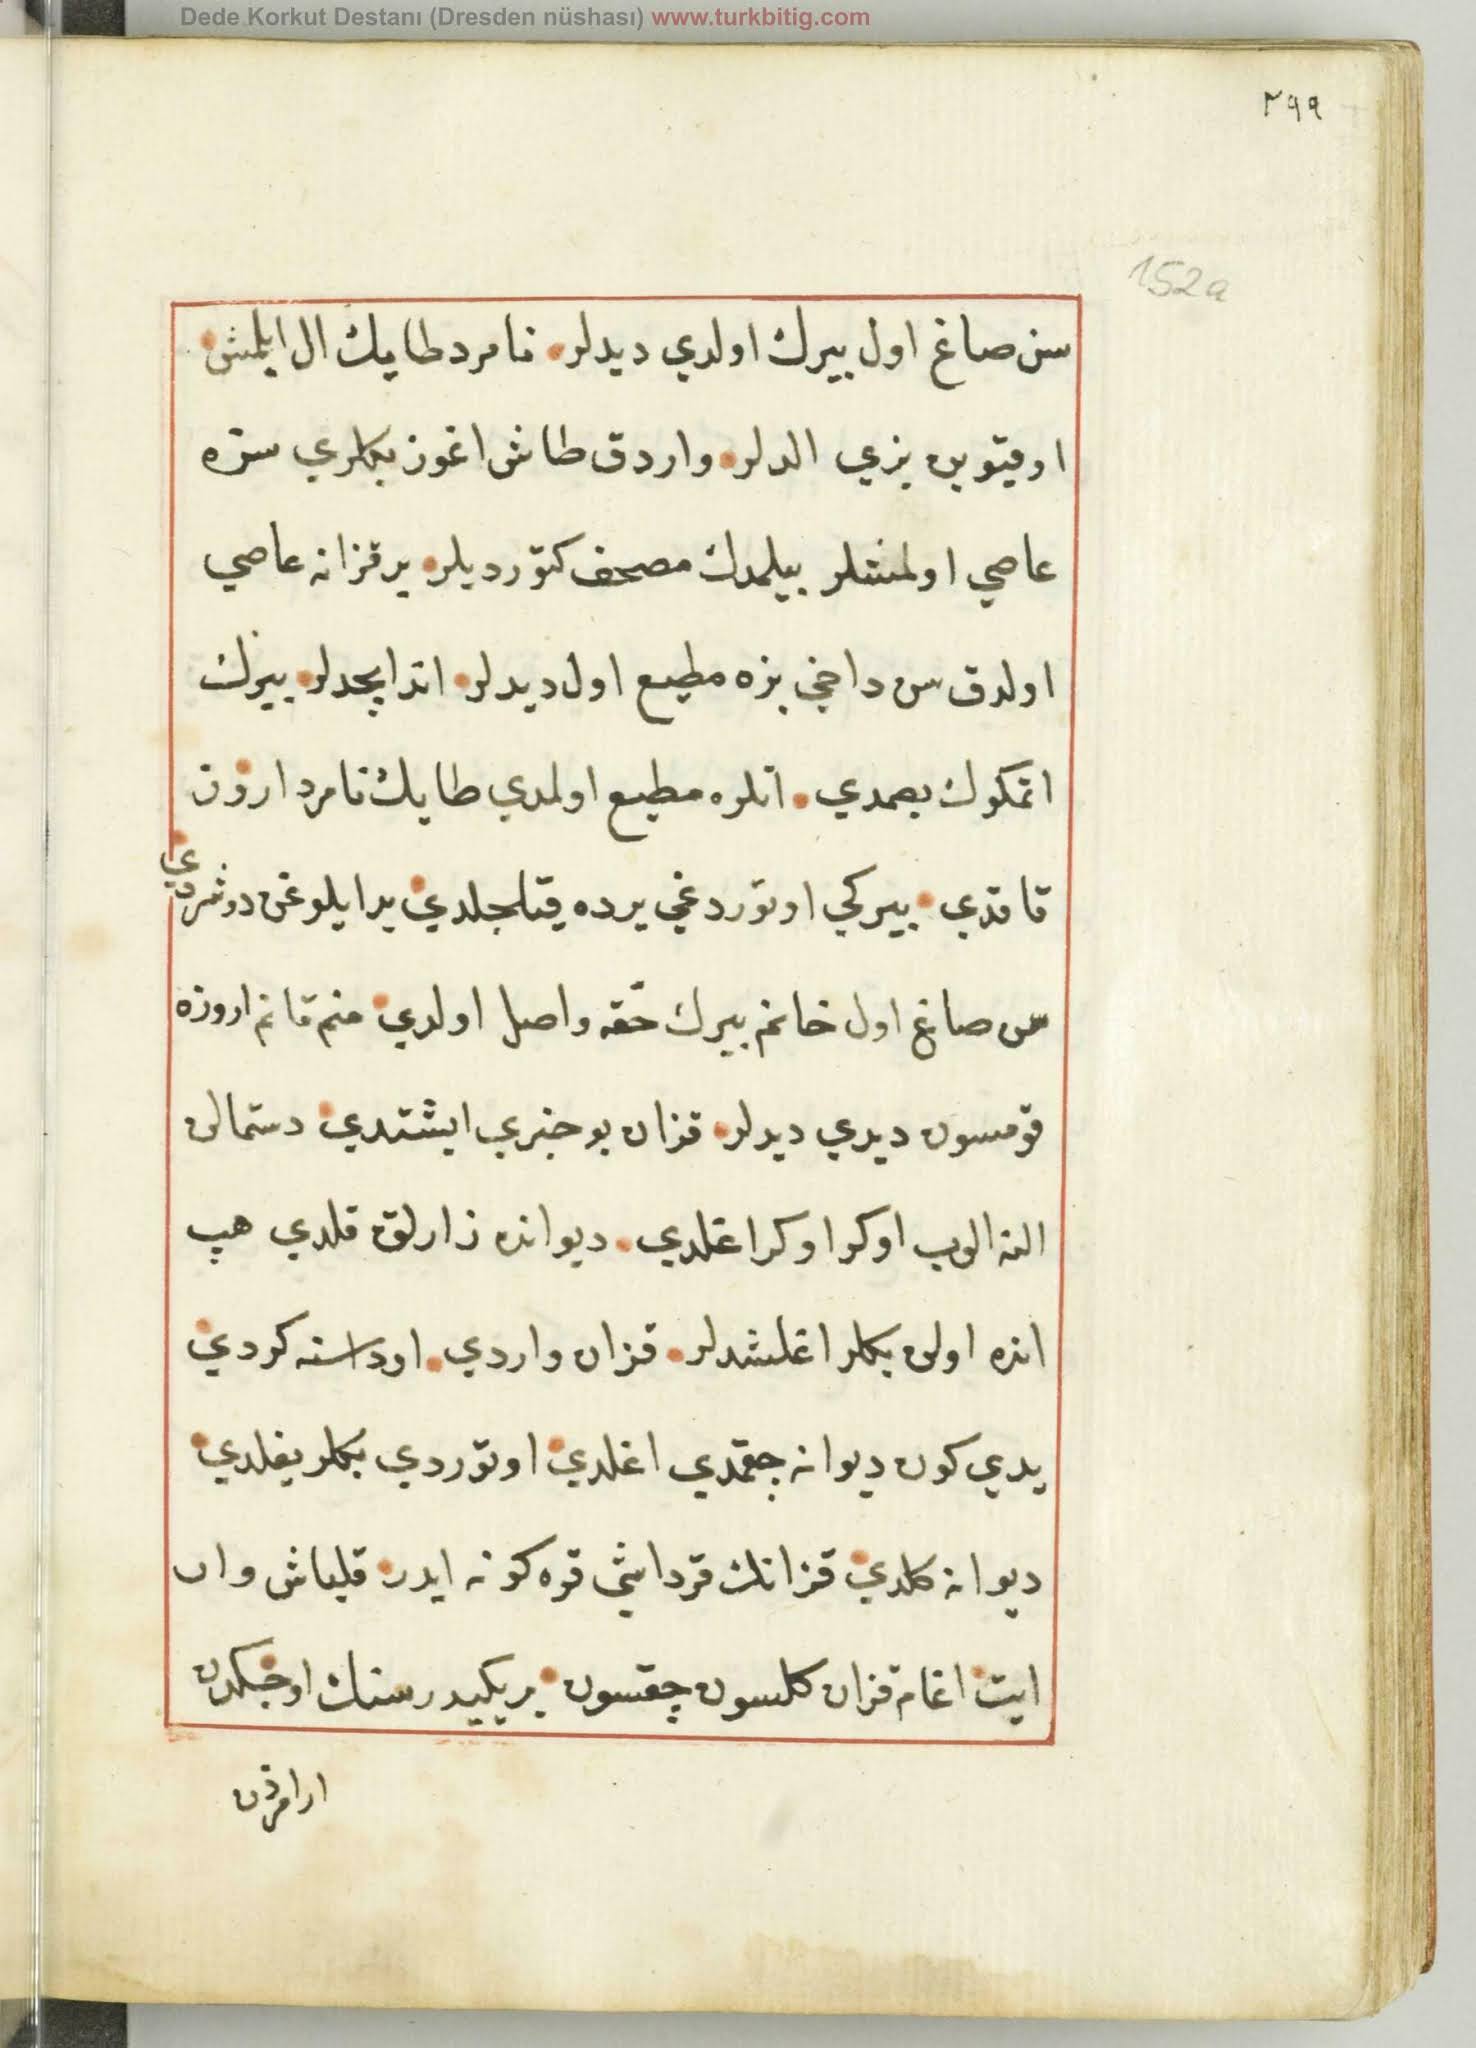 Dede Korkut Destanı (Dresden nüshası) www.turkbitig.com
٢٩٩
152a
سن صاغ اول بيرك اولدي ديدلر نامرد طايك ال ايلمش
اوقيوبن بزي الدلر واردق طاش اغوز بكلري سزه
عاصي اولمشلر بيلمدك مصحف كتورديلر بز قزانه عاصي
اولدق سن داخي بزه مطيع اول ديدلر اند ايچدلر بيرك
اتمكوك بصمدي انلره مطيع اولمدي طايك نامرد اروز
قاقدي بيركي اوتوردغي يرده قيلجلدي بر ايلوغن دوشردي
سن صاغ اول خانم بيرك حقه واصل اولدي منم قانم اروزه
قومسون ديدي ديدلر قزان بو خبري ايشتدي دستمالن
النه الوب اوكر اوكر اغلدي ديوانده زارلق قلدي هپ
انده اولن بكلر اغلشدلر قزان واردي اوداسنه كردي
يدي كون ديوانه چقمدي اغلدي اوتوردي بكلر يغلدي
ديوانه كلدي قزانك قرداشي قره كونه ايدر قلباش وار
ايت اغام قزان كلسون چقسون بر يكيدر سنك اوجكدن
ارامزدن